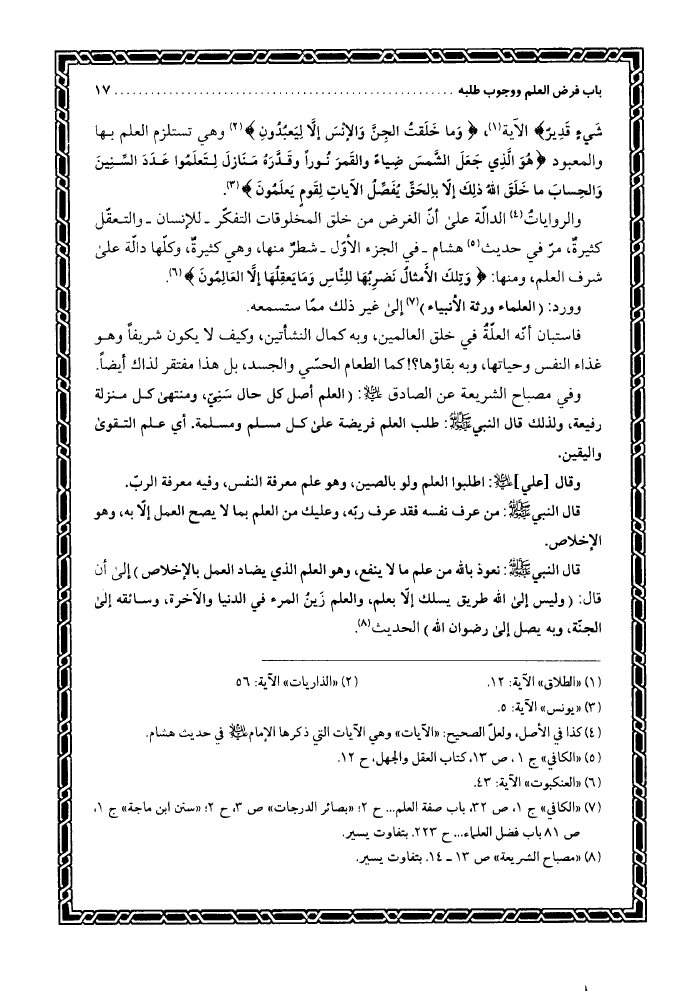 باب فرض العلم ووجوب طلبه ........................................................ ١٧
شَيءٍ قَدِيرٌ﴾ الآية(١)، ﴿ وَما خَلَقتُ الجِنَّ وَالإنْسَ إلَّا لِيَعبُدُونِ ﴾(٢) وهي تستلزم العلم بـها
والمعبود ﴿ هُوَ الَّذِي جَعَلَ الشَّمسَ ضِياءً وَالقمَرَ نُـوراً وقَـدَّرَهُ مَـنازِلَ لِـتَعلَمُوا عَدَدَ السِّنِينَ
وَالحِسابَ ما خَلَقَ اللهُ ذلِكَ إلَّا بِالحَقِّ يُفَصِّلُ الآياتِ لِقَومٍ يَعلَمُونَ ﴾(٣).
والرواياتُ(٤) الدالّة علىٰ أنّ الغرض من خلق المخلوقات التفكّر ـ للإنسان ـ والتـعقّل
كثيرةٌ، مرّ في حديث(٥) هشام ـ في الجزء الأوّل ـ شطرٌ منها، وهي كثيرةٌ، وكلّها دالة علىٰ
شرف العلم، ومنها: ﴿ وَتِلكَ الأَمثالُ نَضرِبُهَا لِلنَّاسِ وَمَا يَعقِلُهَا إلَّا العَالِمُونَ ﴾(٦).
وورد: (العلماء ورثة الأنبياء)(٧) إلىٰ غير ذلك ممّا ستسمعه.
فاستبان أنّه العلّةُ في خلق العالمين، وبه كمال النشأتين، وكيف لا يكون شريفاً وهـو
غذاء النفس وحياتها، وبه بقاؤها؟! كما الطعام الحسّي والجسد، بل هذا مفتقر لذاك أيضاً.
وفي مصباح الشريعة عن الصادق ﷺ: (العلم أصل كل حال سَنِيّ، ومنتهىٰ كـل مـنزلة
رفيعة، ولذلك قال النبي ﷺ: طلب العلم فريضة علىٰ كـل مسـلم ومسـلمة. أي عـلم التـقوىٰ
واليقين.
وقال [علي] ﷺ: اطلبوا العلم ولو بالصين، وهو علم معرفة النفس، وفيه معرفة الربّ.
قال النبي ﷺ: من عرف نفسه فقد عرف ربّه، وعليك من العلم بما لا يصح العمل إلّا به، وهو
الإخلاص.
قال النبي ﷺ: نعوذ بالله من علم ما لا ينفع، وهو العلم الذي يضاد العمل بالإخلاص) إلىٰ أن
قال: (وليس إلىٰ الله طريق يسلك إلّا بعلم، والعلم زَينُ المرء في الدنيا والآخرة، وسائقه إلىٰ
الجنّة، وبه يصل إلىٰ رضوان الله) الحديث(٨).
(١) «الطلاق» الآية: ١٢. (٢) «الذاريات» الآية: ٥٦
(٣) «يونس» الآية: ٥.
(٤) كذا في الأصل، ولعلّ الصحيح: «الآيات» وهي الآيات التي ذكرها الإمام ﷺ في حديث هشام.
(٥) «الكافي» ج ١، ص ١٣، كتاب العقل والجهل، ح ١٢.
(٦) «العنكبوت» الآية: ٤٣.
(٧) «الكافي» ج ١، ص ٣٢، باب صفة العلم... ح ٢؛ «بصائر الدرجات» ص ٣، ح ٢؛ «سنن ابن ماجة» ج ١،
ص ٨١ باب فضل العلماء... ح ٢٢٣. بتفاوت يسير.
(٨) «مصباح الشريعة» ص ١٣ ـ ١٤. بتفاوت يسير.